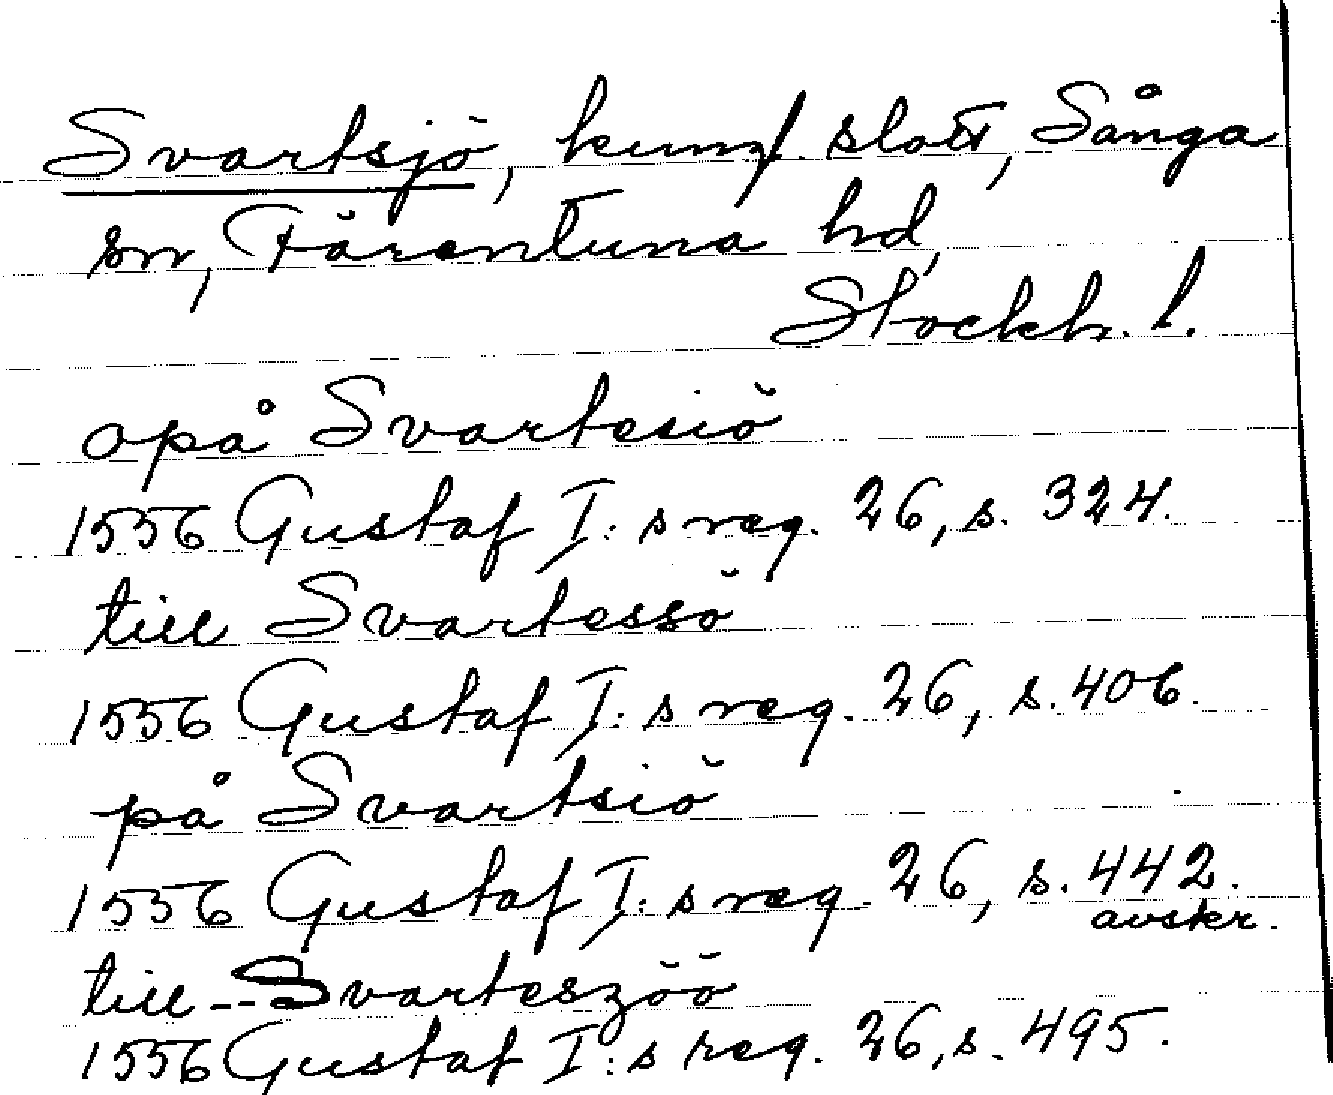 Svartsjö, kungl. slott, Sånga
sn, Färentuna hd,
Stockh. l.
opå Svartesiö
1556 Gustaf I:s reg. 26, s. 324.
till Svartessö
1556 Gustaf I:s reg. 26, s. 406.
på Svartsiö
1556 Gustaf I:s reg. 26, s. 442.
avskr.
till -- Svarteszöö
1556 Gustaf I:s reg. 26, s. 495.